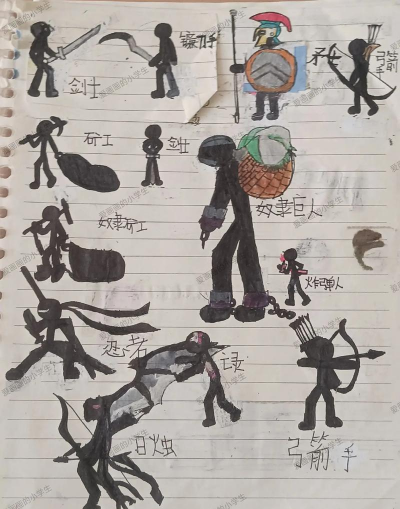 剑士
镰刀手
矛士
弓箭手
矿工
剑士
奴隶巨人
奴隶矿工
炸弹人
忍者
日蚀
弓箭手